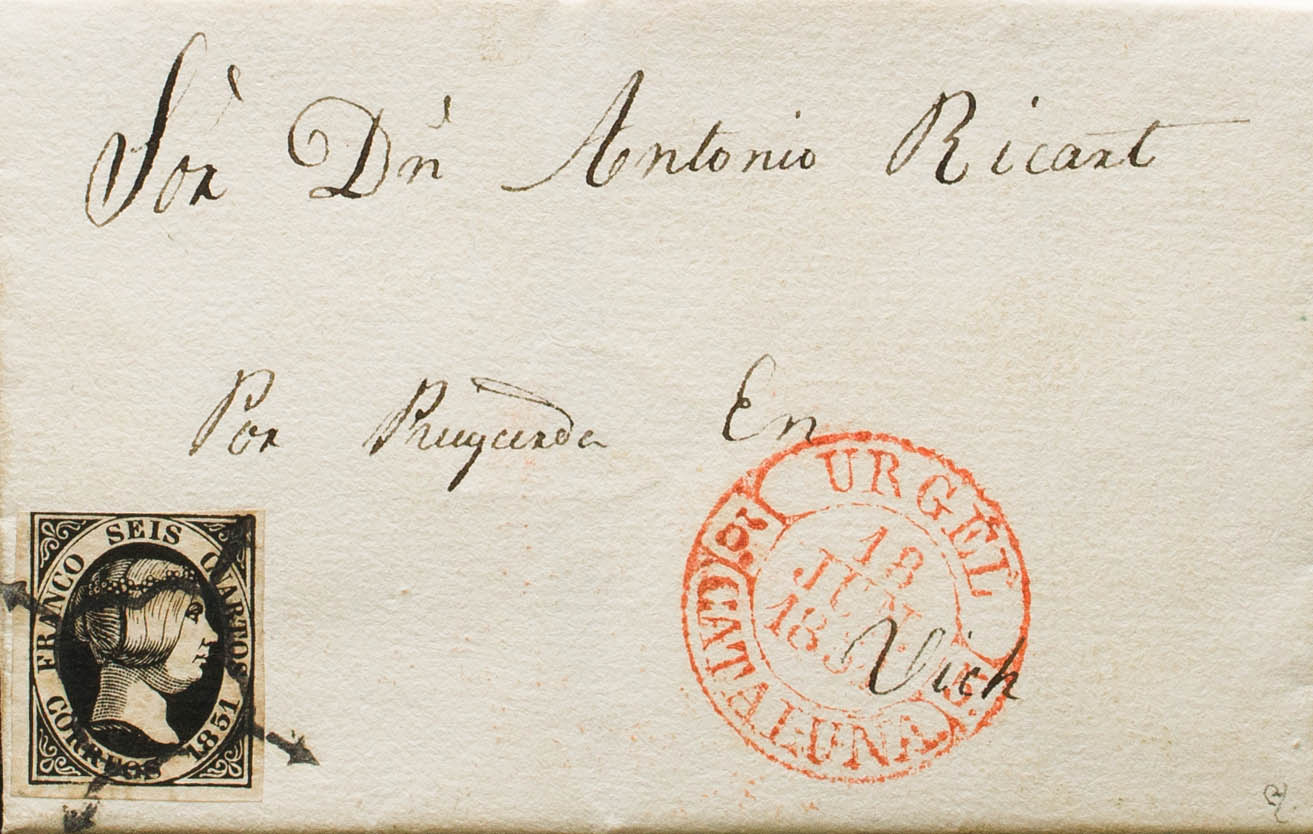 Sor Dn Antonio Ricart
Por Puigcerda En
Vich
FRANCO SEIS CUARTOS
CORREOS 1851
URGÉL
18
JUN.
CATALUÑA